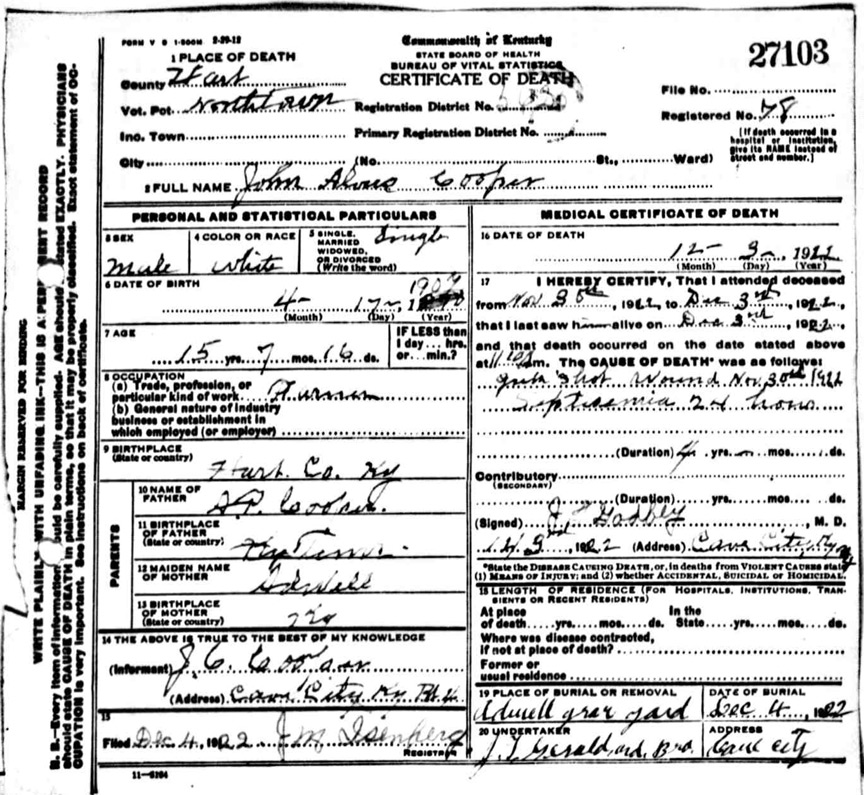 FORM V S 1-500M 2-29-12
Commonwealth of Kentucky
STATE BOARD OF HEALTH
BUREAU OF VITAL STATISTICS
CERTIFICATE OF DEATH
27103
1 PLACE OF DEATH
County Hart
Vot. Pct. Northtown
Inc. Town
City (No. St., Ward)
Registration District No.
Primary Registration District No.
File No.
Registered No. 78
[If death occurred in a hospital or institution, give its NAME instead of street and number.]
2 FULL NAME John Cooper
PERSONAL AND STATISTICAL PARTICULARS
3 SEX
Male
4 COLOR OR RACE
White
5 SINGLE, MARRIED WIDOWED, OR DIVORCED (Write the word)
Single
6 DATE OF BIRTH
4- 17-, 1907
(Month) (Day) (Year)
7 AGE
15 yrs. 7 mos. 16 ds.
IF LESS than 1 day ... hrs. or ... min.?
8 OCCUPATION
(a) Trade, profession, or particular kind of work Farmer
(b) General nature of industry business or establishment in which employed (or employer)
9 BIRTHPLACE
(State or country)
Hart. Co. Ky
PARENTS
10 NAME OF FATHER
A.P. Cooper.
11 BIRTHPLACE OF FATHER
(State or country)
12 MAIDEN NAME OF MOTHER
Adwell
13 BIRTHPLACE OF MOTHER
(State or country)
Ky
14 THE ABOVE IS TRUE TO THE BEST OF MY KNOWLEDGE
(Informant) J. C. Cooper
(Address) Cave City Ky Rt. 4
15
Filed Dec 4, 1922 J M Isenberg
REGISTRAR
11-5184
MEDICAL CERTIFICATE OF DEATH
16 DATE OF DEATH
12- 3-, 1922
(Month) (Day) (Year)
17 I HEREBY CERTIFY, That I attended deceased
from Nov 30th, 1922, to Dec 3rd, 1922,
that I last saw him alive on Dec 3rd, 1922,
and that death occurred on the date stated above
at m. The CAUSE OF DEATH* was as follows:
Gun Shot Wound Nov 30th 1922
Septicemia 24 hours
(Duration) yrs. mos. ds.
Contributory
(SECONDARY)
(Duration) yrs. mos. ds.
(Signed) Gadbey, M. D.
1922 (Address) Cave City Ky
*State the DISEASE CAUSING DEATH, or, in deaths from VIOLENT CAUSES state (1) MEANS OF INJURY; and (2) whether ACCIDENTAL, SUICIDAL OR HOMICIDAL.
18 LENGTH OF RESIDENCE (FOR HOSPITALS, INSTITUTIONS, TRANSIENTS OR RECENT RESIDENTS)
At place of death yrs. mos. ds. In the State yrs. mos. ds.
Where was disease contracted, if not at place of death?
Former or usual residence
19 PLACE OF BURIAL OR REMOVAL
Adwell grave yard
DATE OF BURIAL
Dec 4, 1922
20 UNDERTAKER
J. T. Gerald and Bro.
ADDRESS
Cave City
MARGIN RESERVED FOR BINDING
WRITE PLAINLY WITH UNFADING INK—THIS IS A PERMANENT RECORD
N. B.—Every item of information should be carefully supplied. AGE should be stated EXACTLY. PHYSICIANS
should state CAUSE OF DEATH in plain terms, so that it may be properly classified. Exact statement of OC-
CUPATION is very important. See instructions on back of certificate.